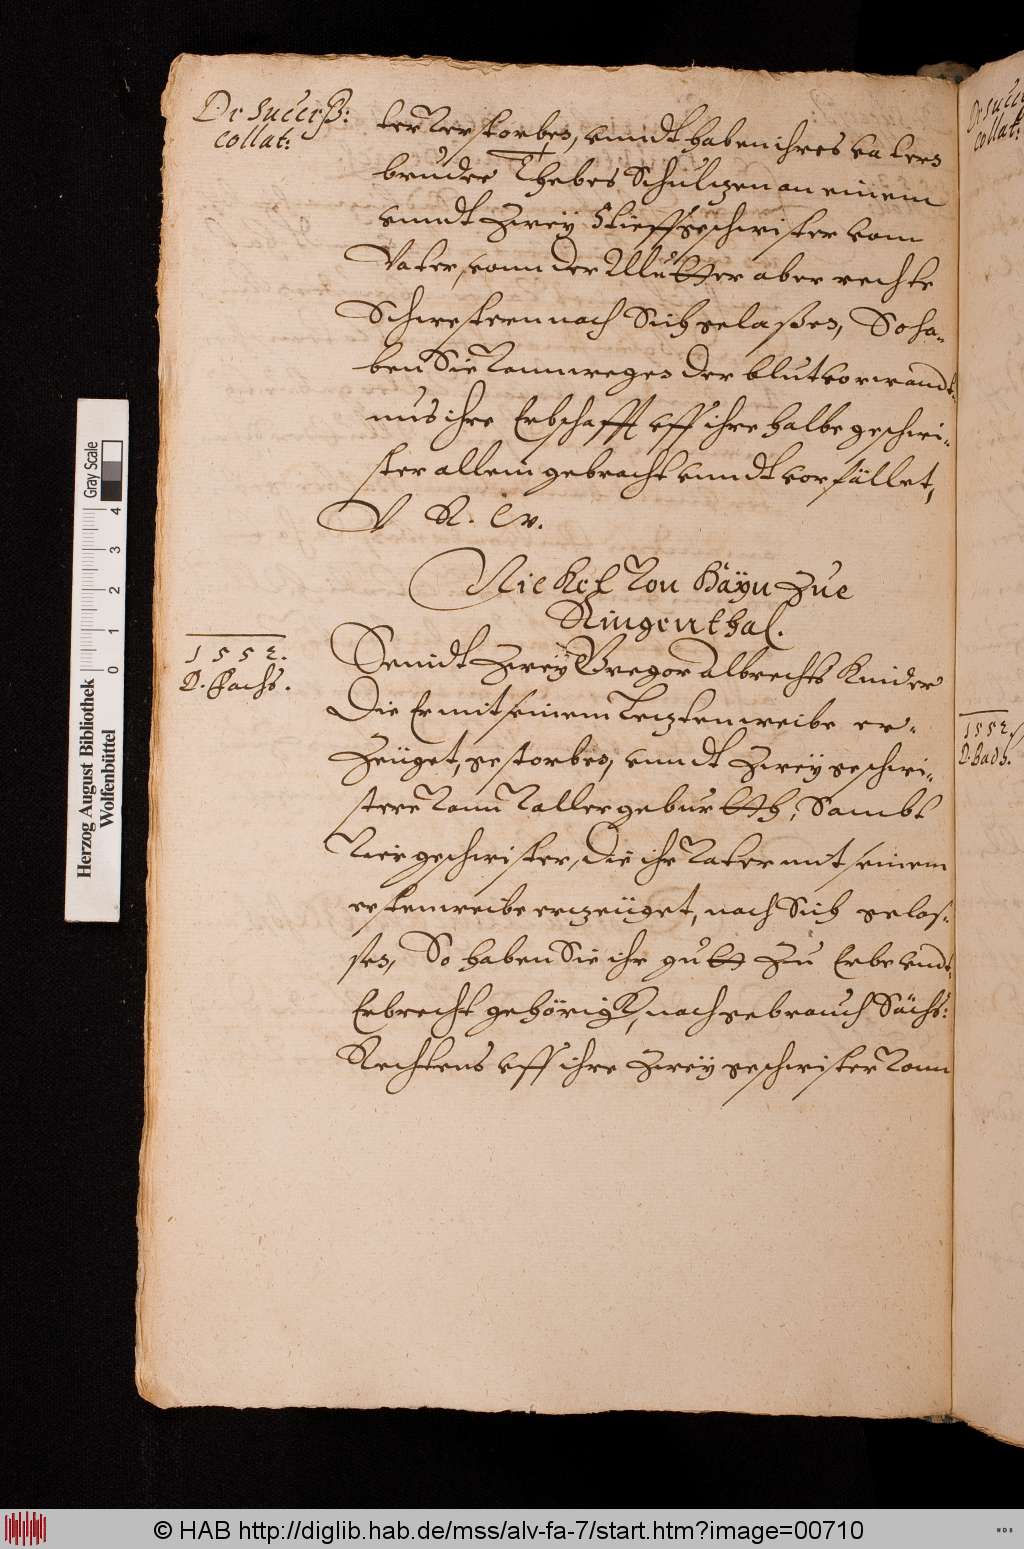 De Succeß:
collat:
ter verstorben, vnndt haben ihres vaters
bruder Thebes Schultzen an einem
vnndt zwey Stieffgeschwister vom
Vater, vonn der Mutter aber rechte
Schwestern nach Sich gelaßen, So ha-
ben Sie vonn wegen der blutvorwandt-
nus ihre Erbschafft vff ihre halbe geschwi-
ster allein gebracht vnndt vorfället,
V R. W.
Nickel von Häyn zue
Ringenthal.
1552.
D. Bachs.
Seindt zwey Gregor Albrechts Kinder
Die Er mit seinem letzten weibe er-
zeüget, gestorben, vnndt zwey geschwi-
stere vonn voller geburtth, Sambt
vier geschwister, die ihr vater mit seinem
ersten weibe erzeüget, nach Sich gelas-
sen, So haben Sie ihr gutt zu Erbe vndt
Erbrecht gehörigk, nach gebrauch Sächs:
Rechtens vff ihre zwey geschwister vonn
1552.
D. Bachs.
Gray Scale
0 1 2 3 4
Herzog August Bibliothek
Wolfenbüttel
© HAB http://diglib.hab.de/mss/alv-fa-7/start.htm?image=00710